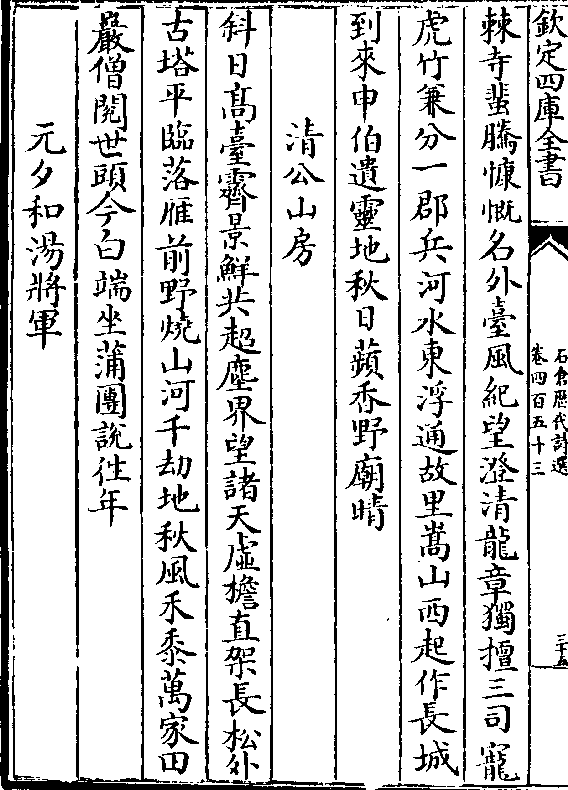 欽定四庫全書
石倉歷代詩選
卷四百五十三
三十五
棘寺蜚騰慷慨名外臺風紀望澄清龍章獨擅三司寵
虎竹兼分一郡兵河水東浮通故里嵩山西起作長城
到來申伯遺靈地秋日蘋香野廟晴
清公山房
斜日髙臺霽景鮮共超塵界望諸天虛檐直架長松外
古塔平臨落雁前野燒山河千劫地秋風禾黍萬家田
巖僧閱世頭今白端坐蒲團說徃年
元夕和湯將軍